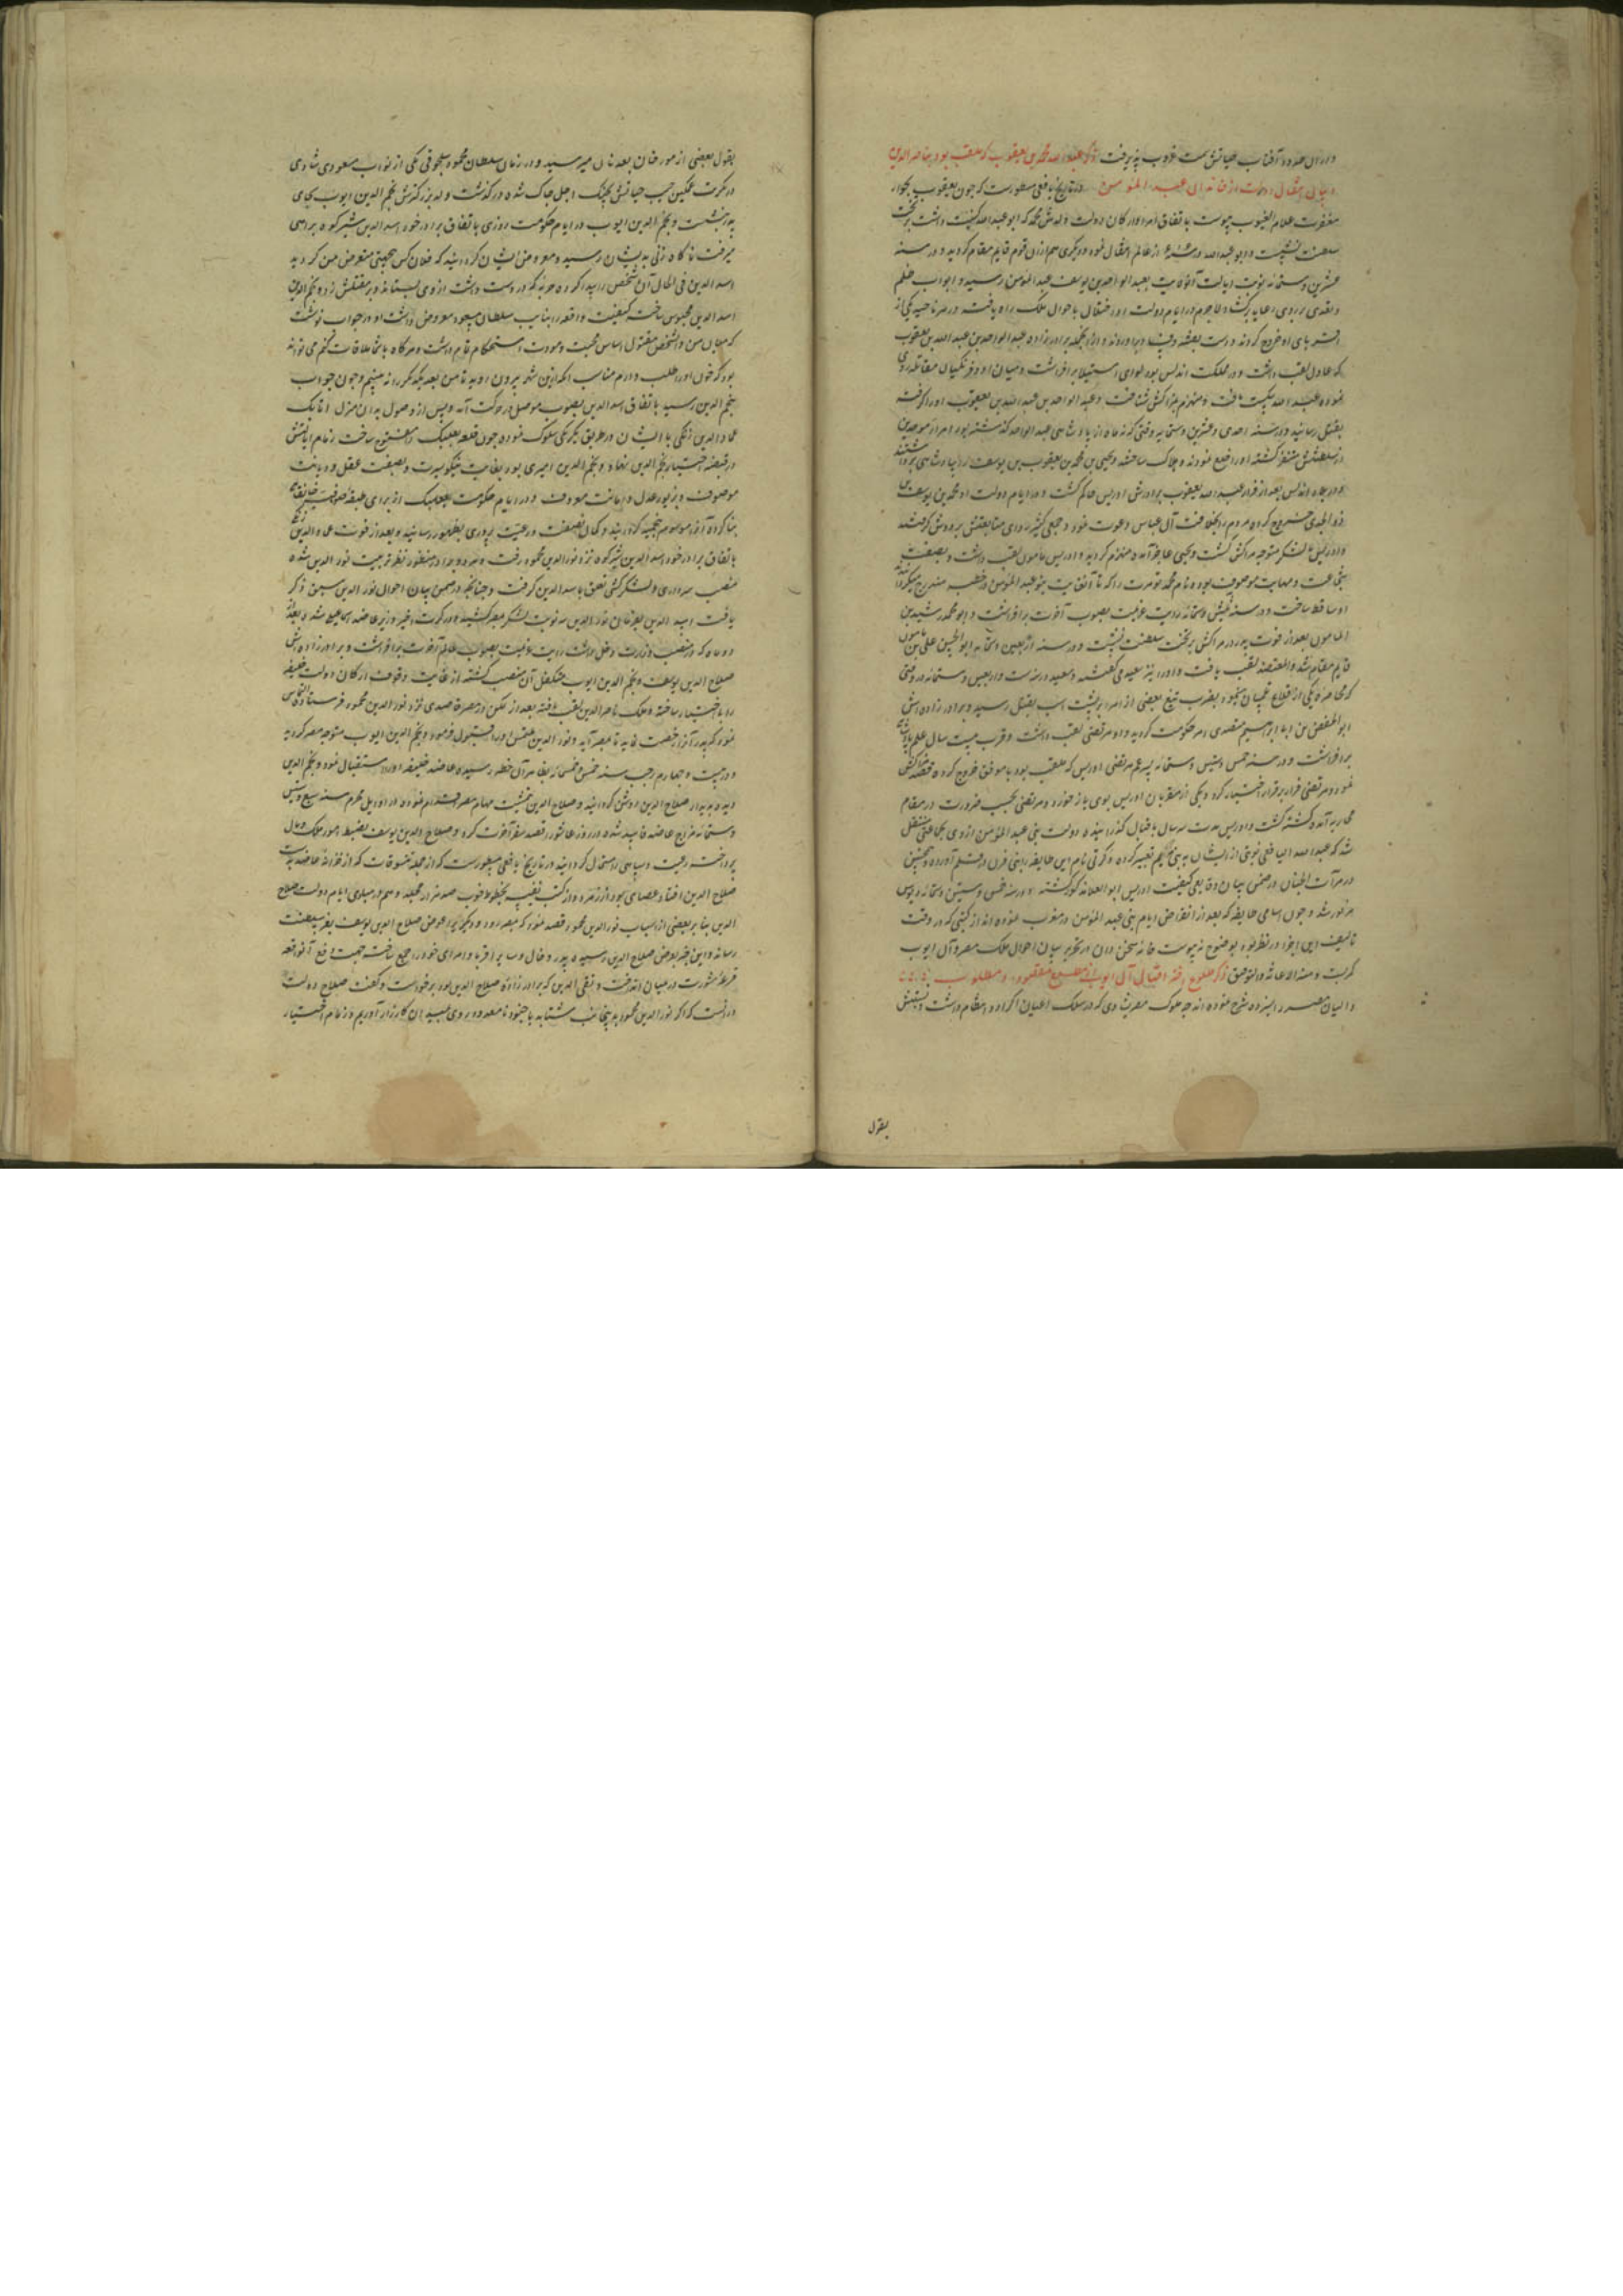 و در آن حدود آفتاب حیاتش سمت غروب پذیرفت ذکر عبدالله محمد بن یعقوب که ملقب بود بناصر الدین
و بیان انتقال دولت از خاندان عبد المومن در تاریخ یافعی مسطورست که چون یعقوب بجوار
مغفرت علام الغیوب پیوست باتفاق امرا و ارکان دولت ولدش محمد که ابو عبدالله کنیت داشت بر تخت
سلطنت نشست و ابو عبدالله در از عالم انتقال نمود و دیگری هم ازان قوم قایم مقام گردید و در سنه
عشرین و ستمائه نوبت ایالت آن ولایت بعبد الواحد بن یوسف بن عبد المومن رسید و ابواب ظلم
و تعدی بر روی رعایا برگشاد لاجرم در ایام دولت او اختلال باحوال ملک راه یافت و در هر ناحیه یکی از
اقربای او خروج کردند و ازانجمله برادرزاده عبد الواحد بن عبدالله بن یعقوب
که عادل لقب داشت و در مملکت اندلس بود لوای استیلا برافراشت و میان او و فرنگیان مقاتله روی
نموده عبد الله شکست یافت و منهزم بمراکش شتافت و عبد الواحد بن عبد الله بن یعقوب او را گرفته
بقتل رسانید و در سنه احدی و عشرین و ستمائه وقتی که نه ماه از پادشاهی عبد الواحد گذشته بود امراء موحدین
از سلطنتش متنفر گشته او را خلع نمودند و هلاک ساختند و یحیی بن محمد بن یعقوب بن یوسف را بپادشاهی برداشتند
و در بلاد اندلس بعد از فرار عبد الله بن یعقوب برادرش ادریس حاکم گشت و در ایام دولت او محمد بن یوسف
خروج کرده مردم را بخلافت آل عباس دعوت نمود و جمعی کثیر روی متابعتش بر دوش گرفتند
و ادریس با لشکر متوجه مراکش گشت و یحیی عاجز آمده منهزم گردید و ادریس مامون لقب داشت و بصفت
شجاعت و مهابت موصوف بود و نام محمد تومرت را که تا آنغایت بنو عبد المومن در خطب مندرج میگردانیدند
او ساقط ساخت و در سنه ثلثین و ستمائه رایت عزیمت بصوب آخرت برافراشت و ابو محمد رشید بن
المامون بعد از فوت پدر در مراکش بر تخت سلطنت نشست و در سنه اربعین و ستمایه ابو الحسن علی بن مامون
قایم مقام شد و المعتضد لقب یافت و او را نیز سعید می گفتند و سعید در سنه ست و اربعین و ستمائه در وقتی
که محاصره یکی از قلاع تلمسان مینمود بضرب تیغ بعضی از امرا بر پشت اسب بقتل رسید و برادرزاده‌اش
ابو حفص بن ابراهیم متصدی امر حکومت گردید و او مرتضی لقب داشت و قرب بیست سال علم پادشاهی
برافراشت و در سنه خمس و ستین و ستمائه پسر عم مرتضی ادریس که ملقب بود بواثق خروج کرده قصد مراکش
نمود و مرتضی فرار بر قرار اختیار کرد و یکی از مقربان ادریس بوی باز خورد و مرتضی بحسب ضرورت در مقام
محاربه آمده کشته گشت و ادریس مدت سه سال باقبال گذرانیده دولت بنی عبد المومن ازو بجماعتی منتقل
شد که عبد الله الیافعی نوبتی از ایشان به بنی تعبیر کرده و کرتی نام این طایفه را بنی مرین در قلم آورده و همچنین
در مرآت الجنان در ضمن بیان وقایعی کیفیت ادریس ابو العلا نه گور گشته و در سنه خمس و ستین و ستمائه
مزبور شد و چون اسامی طایفه که بعد از انقراض ایام بنی عبد المومن در مغرب نموده اند از کتبی که در وقت
تالیف این اجزا در نظر بود بوضوح نه پیوست خامه سخن دان در تحریر بیان احوال ملک مصر و آل ایوب
کمر بست و منه الاعانه والتوفیق ذکر طلوع اختر اقبال آل ایوب از مطلع مقصود و مطلوب
دانایان مصر انبوه شرح نموده اند که ملوک مصر شادی که در سلک اعیان اکراد انتظام داشت و نسبتش
بقول
بقول بعضی از مورخان بعدنان میرسید و در زمان سلطان محمود سلجوقی یکی از نواب مسعودی شادی
در تکریت متمکن جیب حیاتش بچنگ اجل چاک شده درگذشت و ولد بزرگترش نجم الدین ایوب بجای
پدر بنشست و نجم الدین ایوب در ایام حکومت روزی باتفاق برادر خود اسد الدین شیرکوه براهی
میرفت ناگاه زنی بدیشان رسید و معروض ایشان گردانید که فلان کس بجهتی متعرض من گردید
اسد الدین فی الحال آن شخص را پیدا کرده حربه که در دست داشت از وی بستاند و بر مقتلش زد و نجم الدین
اسد الدین محبوس ساخت کیفیت واقعه را بنایب سلطان مسعود معروض داشت او در جواب نوشت
که میان من و آنشخص مقتول اساس محبت و مودت استحکام تمام داشت و هرگاه با شما ملاقات کنم می تواند
بود که خون او را طلب دارم مناسب آنکه ازین شهر بیرون روید تا من بعد یکدیگر را نه بینیم و چون جواب
بنجم الدین رسید باتفاق اسد الدین بصوب موصل در حرکت آمد و پس از وصول بدان منزل اتابک
عماد الدین زنگی با ایشان در طریق یکرنگی سلوک نموده چون قلعه بعلبک را مفتوح ساخت زمام ایالتش
در قبضه اختیار نجم الدین نهاد و نجم الدین امیری بود بغایت نیکو سیرت و بصفت عقل و دیانت
موصوف و بزیور عدل و امانت معروف و در ایام حکومت بعلبک از برای طبقه صوفیه خانقاهی
بنا کرده آنرا موسوم بنجمیه گردانید و کمال نصفت و رعیت پروری بظهور رسانید و بعد از فوت عماد الدین زنگی
باتفاق برادر خود اسد الدین شیرکوه نزد نور الدین محمود رفت و هر دو برادر منظور نظر تربیت نور الدین شده
منصب سرداری و لشکرکشی تعلق باسد الدین گرفت و چنانچه در ضمن بیان احوال نور الدین سبق ذکر
یافت اسد الدین بفرمان نور الدین سه نوبت لشکر بمصر کشیده در کرت اخیر وزیر عاضد اسماعیلی شد و بعد از
دو ماه که در منصب وزارت دخل داشت رایت عزیمت بصوب عالم آخرت برافراشت و برادرزاده‌اش
صلاح الدین یوسف بن نجم الدین ایوب متکفل آن منصب گشته از غایت وقوف ارکان دولت خلیفه
را با اختیار ساخته و ملک ناصر الدین لقب یافته بعد از تمکن در مصر قاصدی نزد نور الدین محمود فرستاده التماس
نمود که پدر او را رخصت نماید تا بمصر آید و نور الدین ملتمس او را قبول فرمود و نجم الدین ایوب متوجه مصر گردید
و در بیست و چهارم رجب سنه خمس و خمسمائه بظاهر آن خطه رسیده عاضد خلیفه او را استقبال نمود و نجم الدین
دیده بدیدار صلاح الدین روشن گردانید و صلاح الدین بتمشیت مهام مصر قیام نموده در اوایل محرم سنه سبع و ستین
و ستمائه مزاج عاضد فاسد شده در روز عاشورا قصد سفر آخرت کرد و صلاح الدین یوسف بضبط امور ملک و مال
پرداخت رعیت و سپاهی را خوشحال گردانید در تاریخ یافعی مسطورست که از جمله متروکات که از خزانه عاضد بدست
صلاح الدین افتاد عصای بود از زمرد و از کتب نفیسه بخطوط خوب صد هزار مجلد و هم در مبادی ایام دولت صلاح
الدین بنا بر بعضی از اسباب نور الدین محمود قصد نمود که بمصر رود و دیگری را عوض صلاح الدین یوسف بفر سلطنت
رساند و این خبر بعرض صلاح الدین رسیده پدر و خال و سایر اقربا و امرای خود را جمع ساخت جهت دفع آنواقعه
قرعه مشورت در میان انداخت و تقی الدین که برادرزاده صلاح الدین بود برخواست و گفت صلاح دولت
در آنست که اگر نور الدین محمود بدینجانب شتابد با جنود نامعدود روی بمیدان کارزار آوریم و زمام اختیار